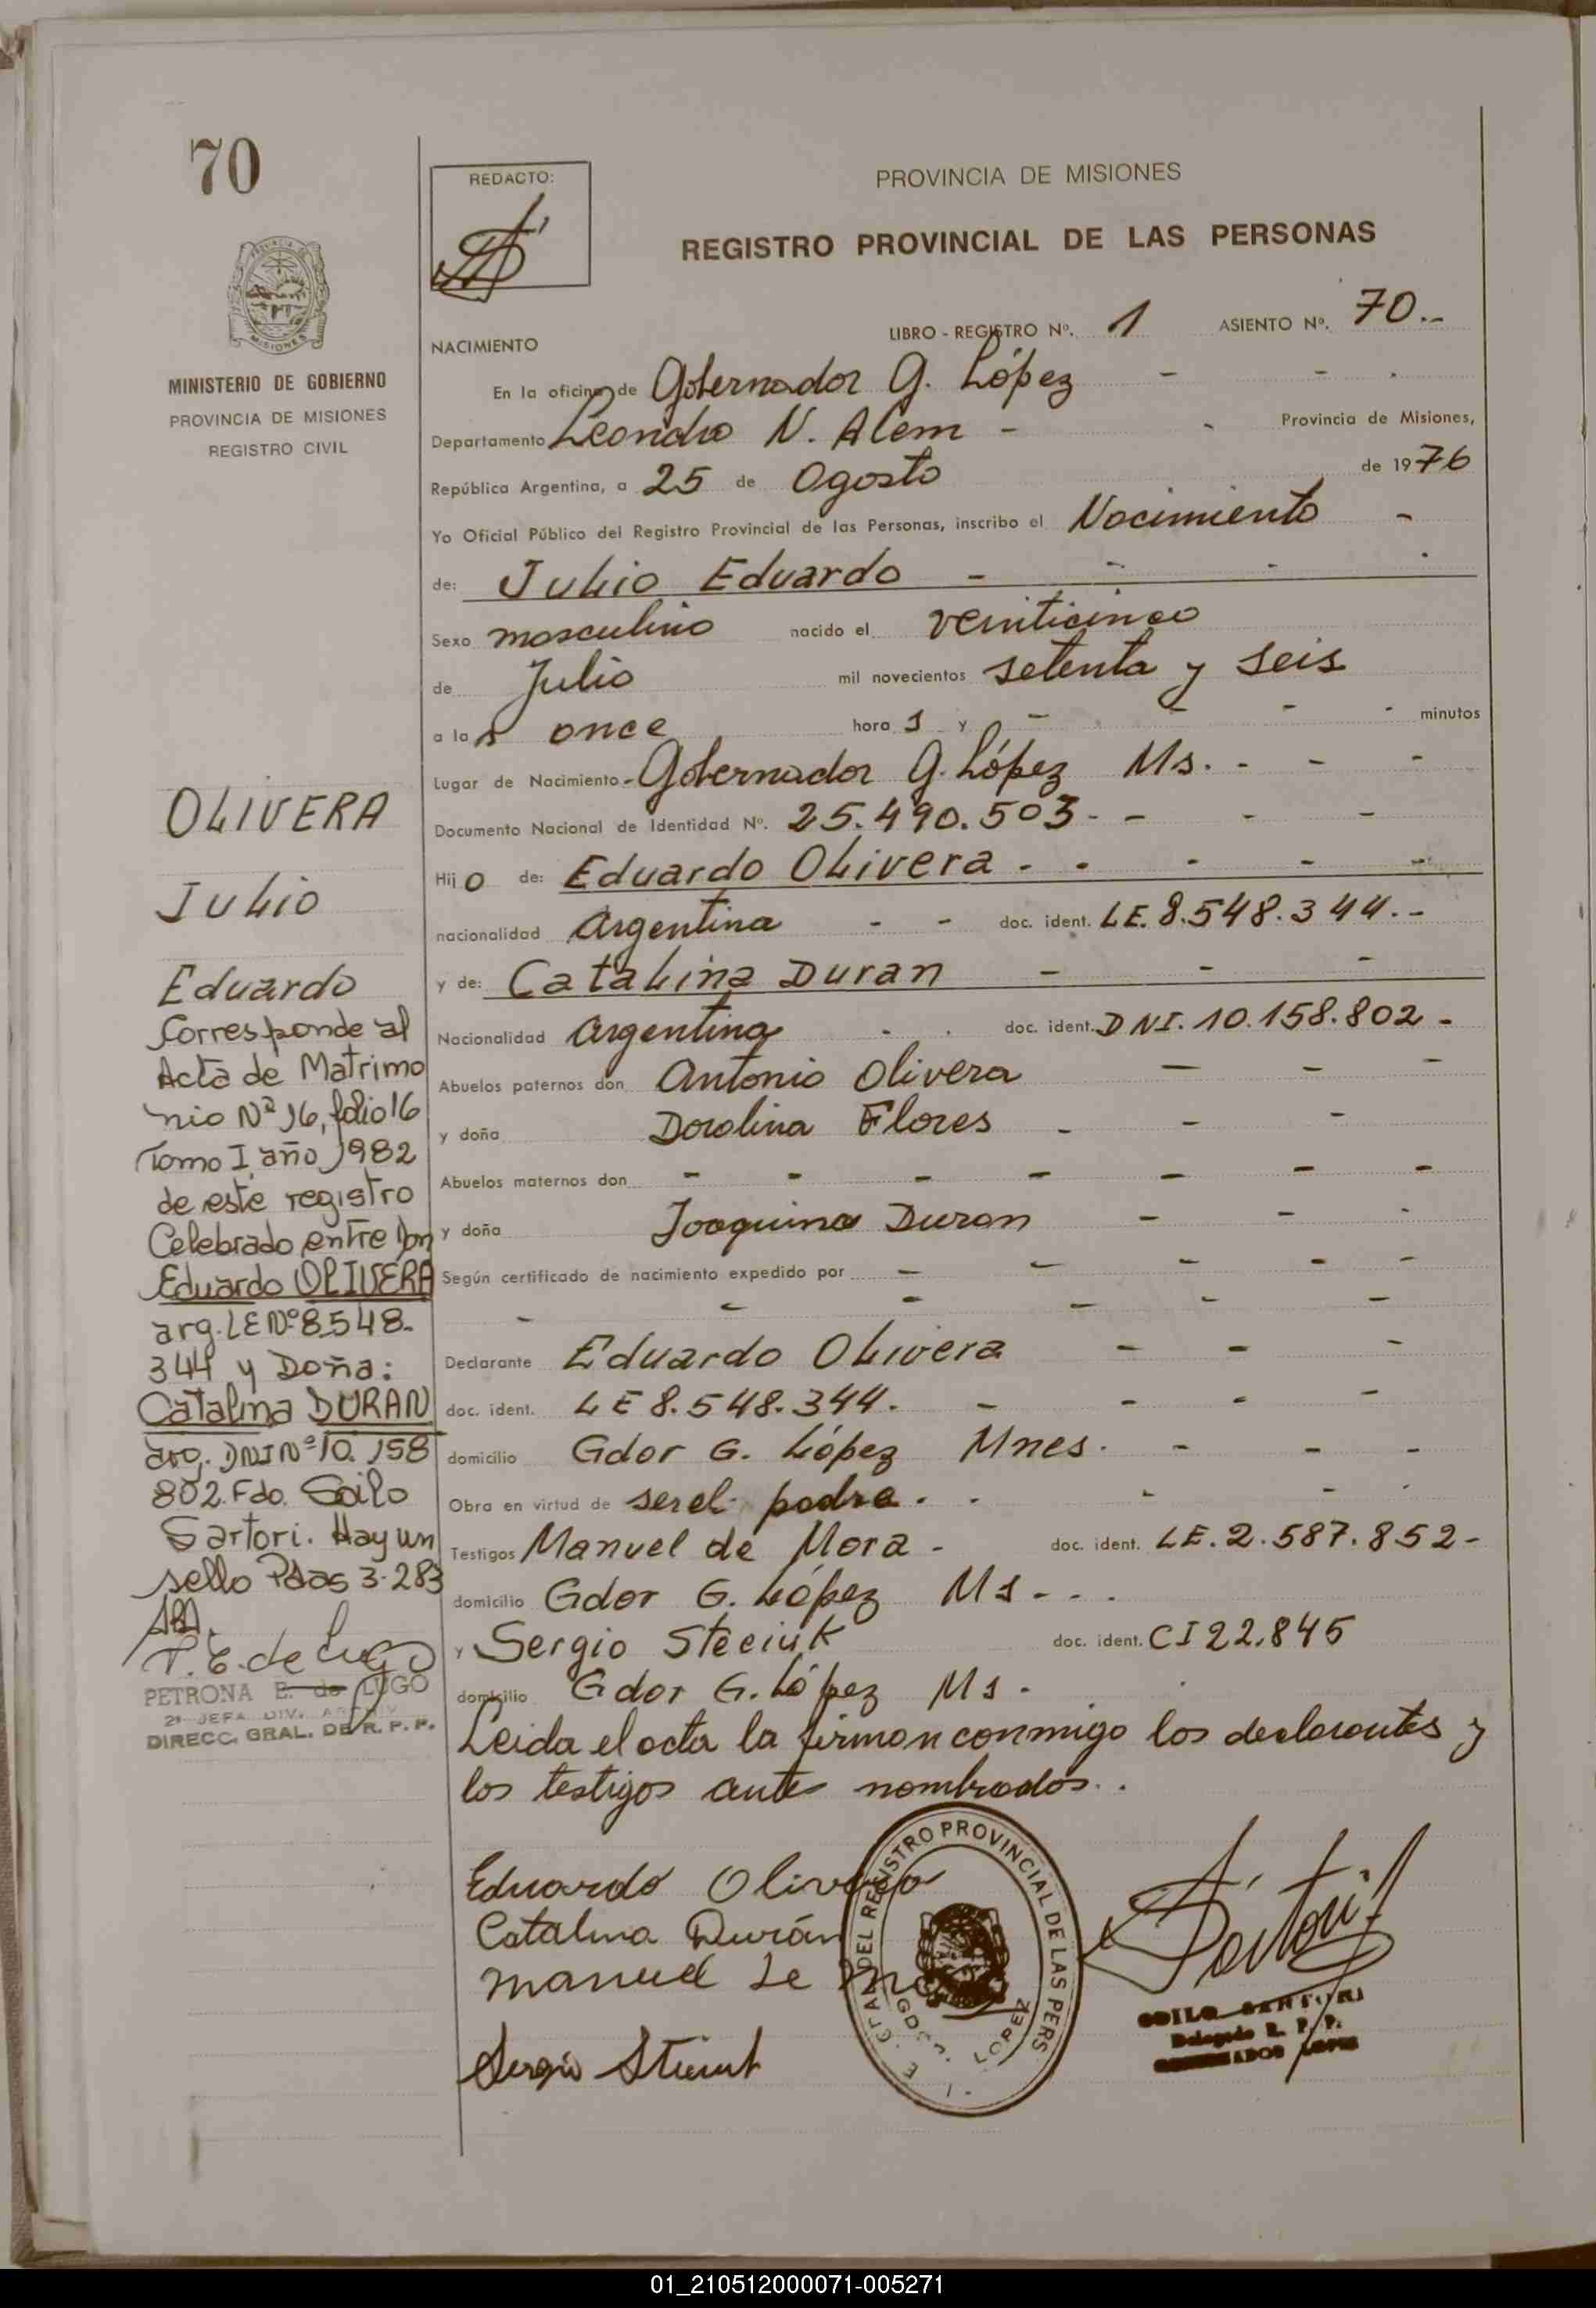 70
REDACTO:
PROVINCIA DE MISIONES
REGISTRO PROVINCIAL DE LAS PERSONAS
MISIONES
MINISTERIO DE GOBIERNO
PROVINCIA DE MISIONES
REGISTRO CIVIL
NACIMIENTO
LIBRO - REGISTRO Nº. 1 ASIENTO Nº. 70.-
En la oficina de Gobernador G. López - - .
Departamento Leandro N. Alem - - Provincia de Misiones,
República Argentina, a 25 de Agosto de 1976
Yo Oficial Público del Registro Provincial de las Personas, inscribo el Nacimiento -
de: Julio Eduardo - - - .
Sexo masculino nacido el veinticinco
de Julio mil novecientos setenta y seis
a las once horas y - - - - minutos
Lugar de Nacimiento - Gobernador G. López Ms. - - -
Documento Nacional de Identidad Nº. 25.490.503 - - - -
Hijo de: Eduardo Olivera - - - - -
nacionalidad Argentina - - doc. ident. LE. 8.548.344.-
y de: Catalina Duran - - -
Nacionalidad Argentina - . doc. ident. DNI. 10.158.802 -
Abuelos paternos don Antonio Olivera - - -
y doña Dorolina Flores - - -
Abuelos maternos don - - - - - - -
y doña Joaquina Duran - - -
Según certificado de nacimiento expedido por - - - - -
- - - - - -
Declarante Eduardo Olivera - - -
doc. ident. LE 8.548.344. - - - -
domicilio Gdor G. López Mnes. - - -
Obra en virtud de ser el padre. - - - -
Testigos Manuel de Mora - doc. ident. LE. 2.587.852-
domicilio Gdor G. López Ms - - .
y Sergio Steciuk doc. ident. CI 22.845
domicilio Gdor G. López Ms -
Leida el acta la firman conmigo los declarantes y
los testigos antes nombrados. .
OLIVERA
Julio
Eduardo
Corresponde al
Acta de Matrimo
nio Nº 16, folio 16
Tomo I año 1982
de este registro
Celebrado entre Don
Eduardo OLIVERA
arg. LE Nº 8.548.
344 y Doña:
Catalina DURAN
arg. DNI Nº 10.158
802. Fdo. Soilo
Sartori. Hay un
sello Pdas 3-283
P. E. de Lugo
PETRONA E. de LUGO
2ª JEFA DIV. ARCHIV
DIRECC. GRAL. DE R. P. P.
Eduardo Olivera
Catalina Durán
Manuel de
Sergio
DEL REGISTRO PROVINCIAL DE LAS PERS.
GDOR. LOPEZ
Sartori
ODILO SARTORI
Delegado R. P. P.
GOBERNADOR LOPEZ
01_210512000071-005271